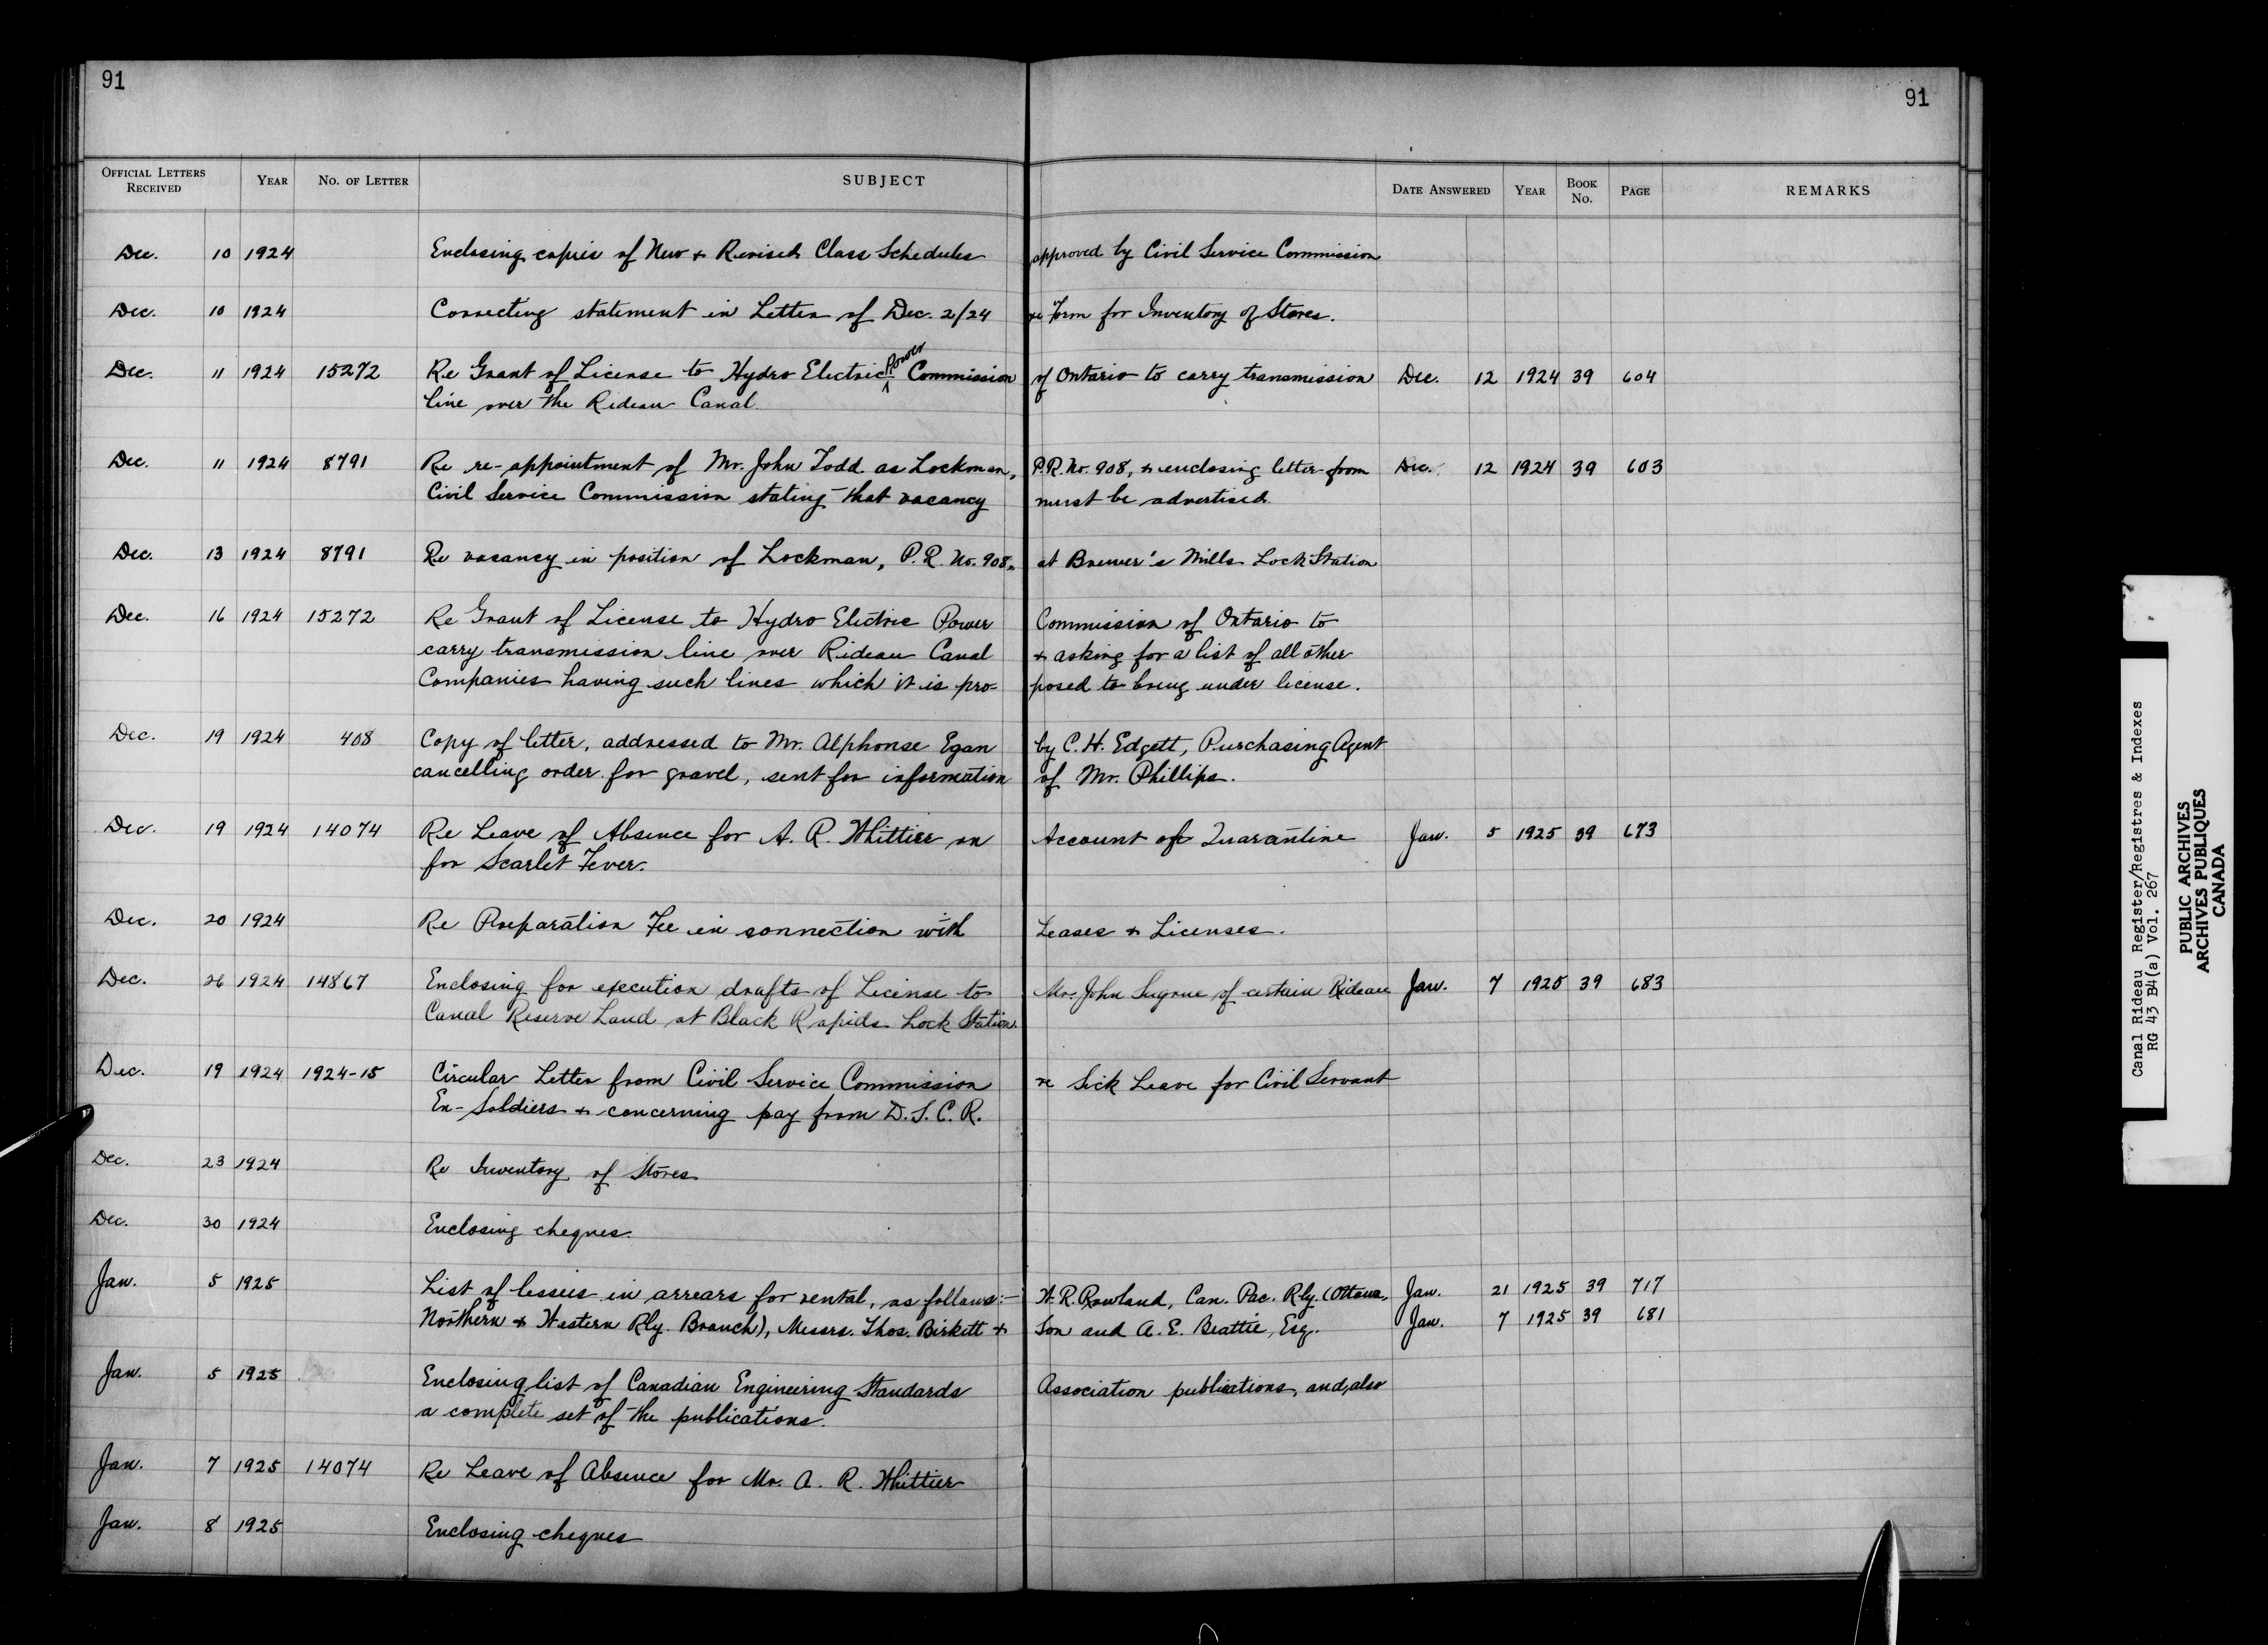 91
91
OFFICIAL LETTERS RECEIVED YEAR NO. OF LETTER SUBJECT DATE ANSWERED YEAR BOOK NO. PAGE REMARKS
Dec. 10 1924 Enclosing copies of New & Revised Class Schedules approved by Civil Service Commission
Dec. 10 1924 Correcting statement in Letter of Dec. 2/24 re Form for Inventory of Stores.
Dec. 11 1924 15272 Re Grant of License to Hydro Electric Power Commission of Ontario to carry transmission Dec. 12 1924 39 604
line over the Rideau Canal.
Dec. 11 1924 8791 Re re-appointment of Mr. John Todd as Lockman, P.R. No. 908, & enclosing letter from Dec. 12 1924 39 603
Civil Service Commission stating that vacancy must be advertised
Dec. 13 1924 8791 Re vacancy in position of Lockman, P.R. No. 908, at Brewer's Mills Lock Station
Dec. 16 1924 15272 Re Grant of License to Hydro Electric Power Commission of Ontario to
carry transmission line over Rideau Canal & asking for a list of all other
Companies having such lines which it is pro- posed to bring under license.
Dec. 19 1924 408 Copy of letter, addressed to Mr. Alphonse Egan by C. H. Edgett, Purchasing Agent
cancelling order for gravel, sent for information of Mr. Phillips.
Dec. 19 1924 14074 Re Leave of Absence for A. R. Whittier on Account of Quarantine Jan. 5 1925 39 673
for Scarlet Fever.
Dec. 20 1924 Re Preparation Fee in connection with Leases & Licenses.
Dec. 26 1924 14867 Enclosing for execution drafts of License to Mr. John Sugrue of certain Rideau Jan. 7 1925 39 683
Canal Reserve Land at Black Rapids Lock Station.
Dec. 19 1924 1924-15 Circular Letter from Civil Service Commission re Sick Leave for Civil Servant
Ex-Soldiers & concerning pay from D.S.C.R.
Dec. 23 1924 Re Inventory of Stores
Dec. 30 1924 Enclosing cheques.
Jan. 5 1925 List of lessees in arrears for rental, as follows:- W. R. Rowland, Can. Pac. Rly. (Ottawa, Jan. 21 1925 39 717
Northern & Western Rly. Branch), Messrs. Thos. Birkett & Son and A. E. Beattie, Esq. Jan. 7 1925 39 681
Jan. 5 1925 Enclosing list of Canadian Engineering Standards Association publications, and, also
a complete set of the publications.
Jan. 7 1925 14074 Re Leave of Absence for Mr. A. R. Whittier
Jan. 8 1925 Enclosing cheques
Canal Rideau Register/Registres & Indexes
RG 43 B4(a) Vol. 267
PUBLIC ARCHIVES
ARCHIVES PUBLIQUES
CANADA